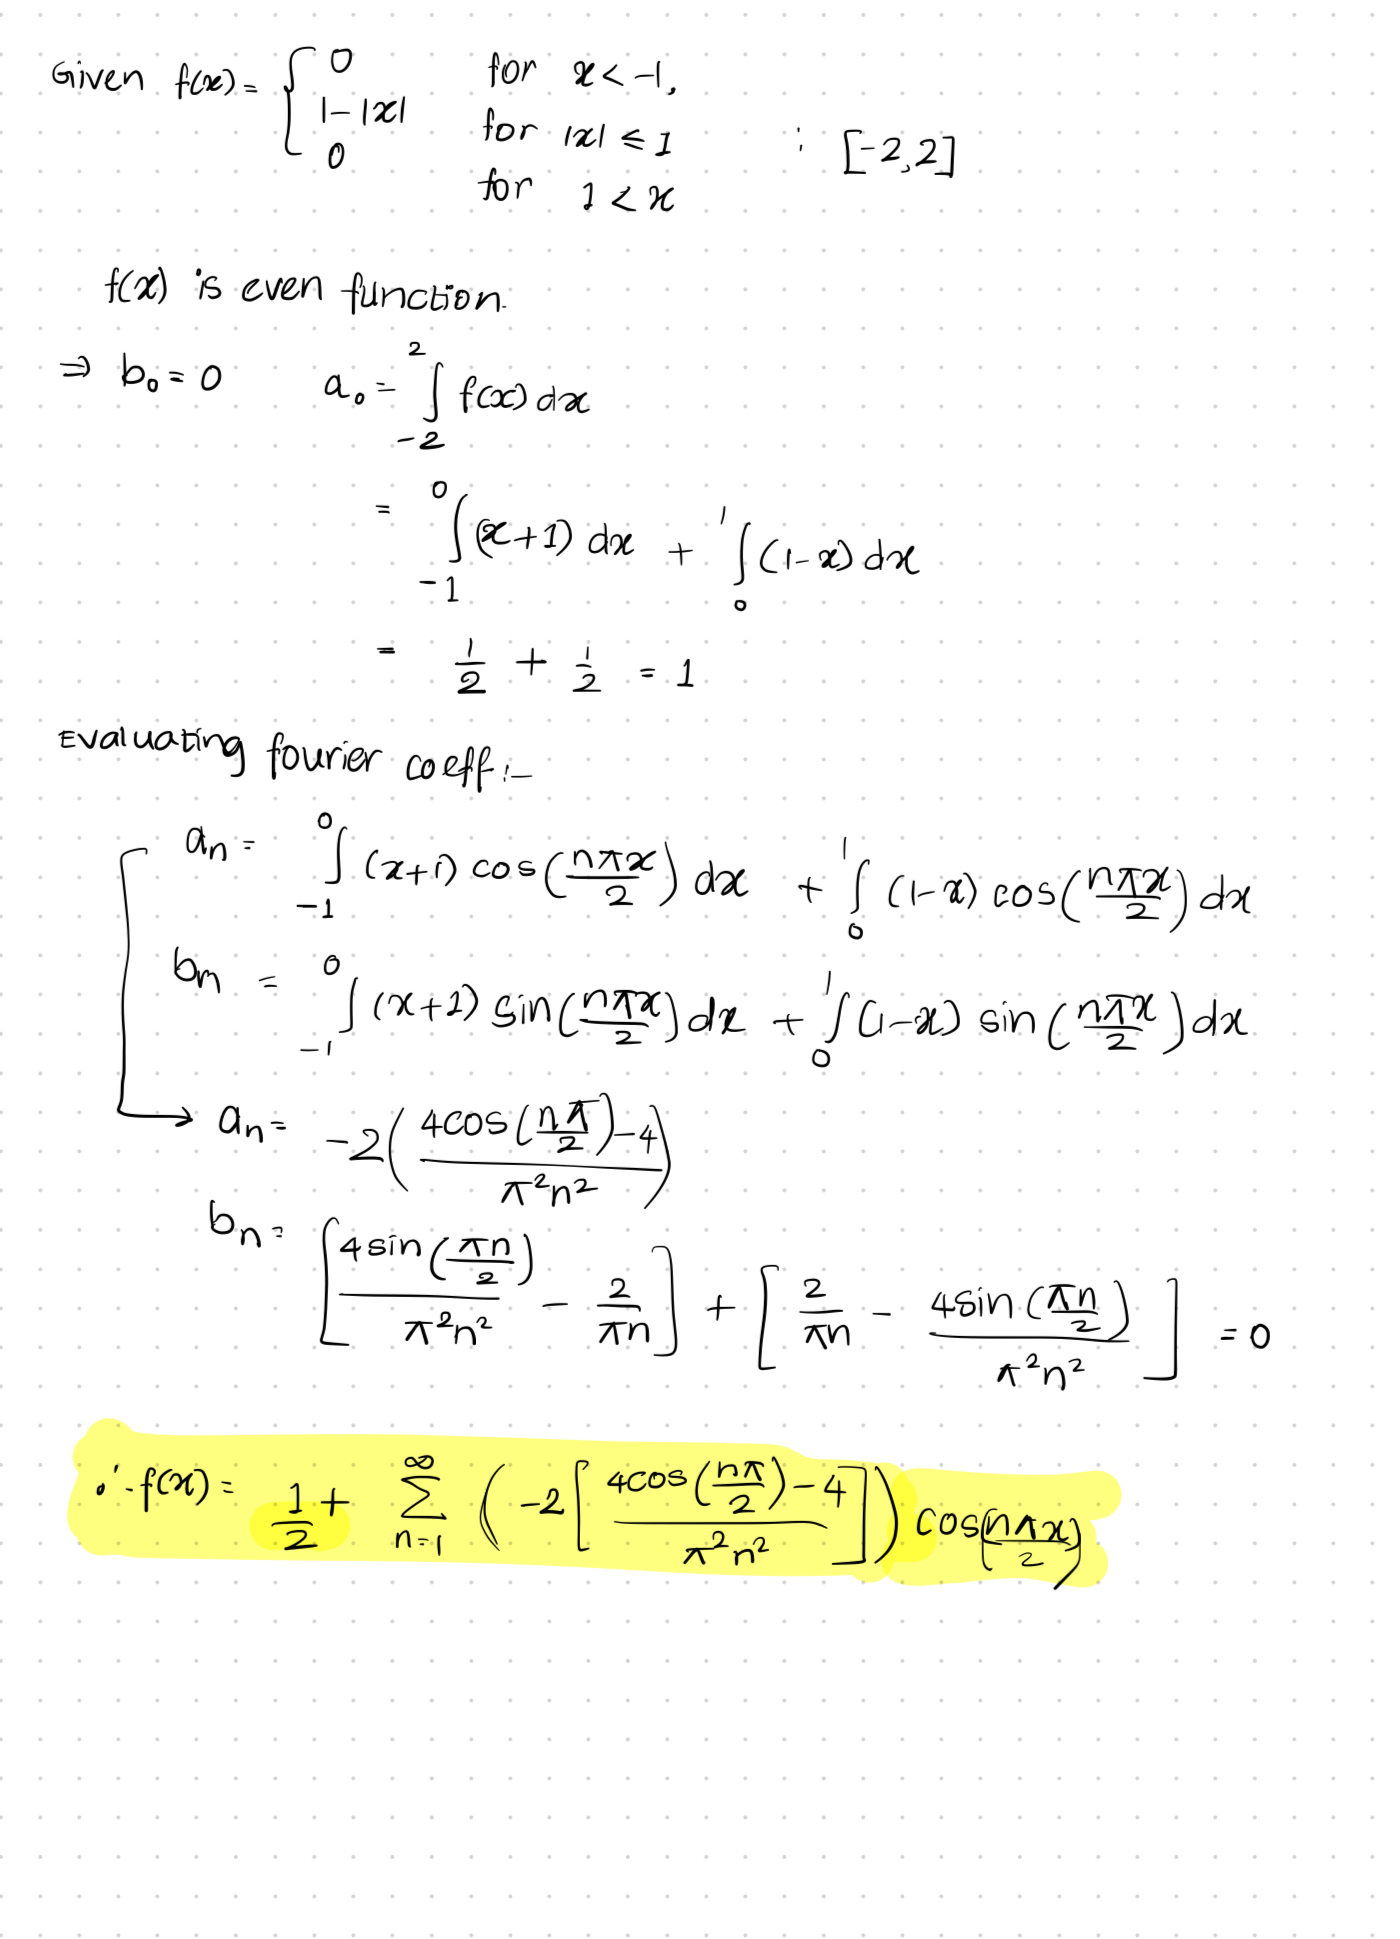 Given f(x) = { 0 for x < -1,
1-|x| for |x| ≤ 1 : [-2,2]
0 for 1 < x
f(x) is even function.
⇒ b₀ = 0 a₀ = ∫_{-2}^{2} f(x) dx
= ∫_{-1}^{0} (x+1) dx + ∫_{0}^{1} (1-x) dx
= 1/2 + 1/2 = 1
Evaluating fourier coeff:-
aₙ = ∫_{-1}^{0} (x+1) cos(nπx/2) dx + ∫_{0}^{1} (1-x) cos(nπx/2) dx
bₙ = ∫_{-1}^{0} (x+1) sin(nπx/2) dx + ∫_{0}^{1} (1-x) sin(nπx/2) dx
→ aₙ = -2( (4cos(nπ/2) - 4) / π²n² )
bₙ = [ 4sin(πn/2) / π²n² - 2/πn ] + [ 2/πn - 4sin(πn/2) / π²n² ] = 0
∴ f(x) = 1/2 + ∑_{n=1}^{∞} ( -2[ (4cos(nπ/2) - 4) / π²n² ] ) cos(nπx/2)